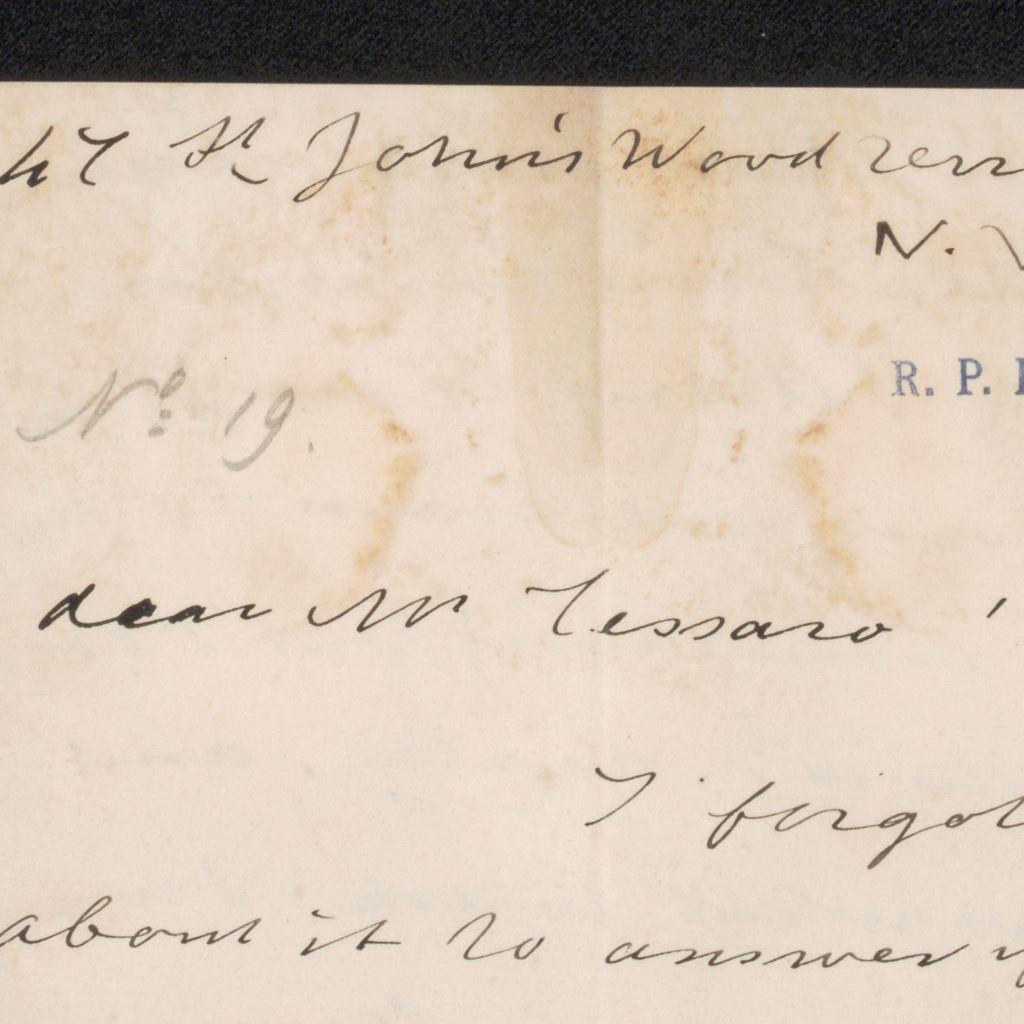 47 St John's Wood Terr
N. W
No. 19.
R. P.
dear Mr Tessaro '
I forgot
about it to answer y